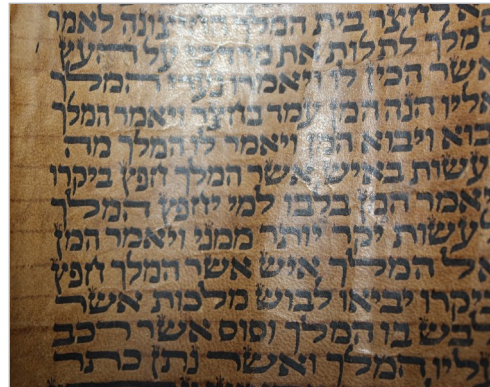 לחצר בית המלך החיצונה לאמר
למלך לתלות את מרדכי על העץ
אשר הכין לו ויאמרו נערי המלך
אליו הנה המן עמד בחצר ויאמר המלך
יבוא ויבוא המן ויאמר לו המלך מה
לעשות באיש אשר המלך חפץ ביקרו
ויאמר המן בלבו למי יחפץ המלך
לעשות יקר יותר ממני ויאמר המן
אל המלך איש אשר המלך חפץ
ביקרו יביאו לבוש מלכות אשר
לבש בו המלך וסוס אשר רכב
עליו המלך ואשר נתן כתר